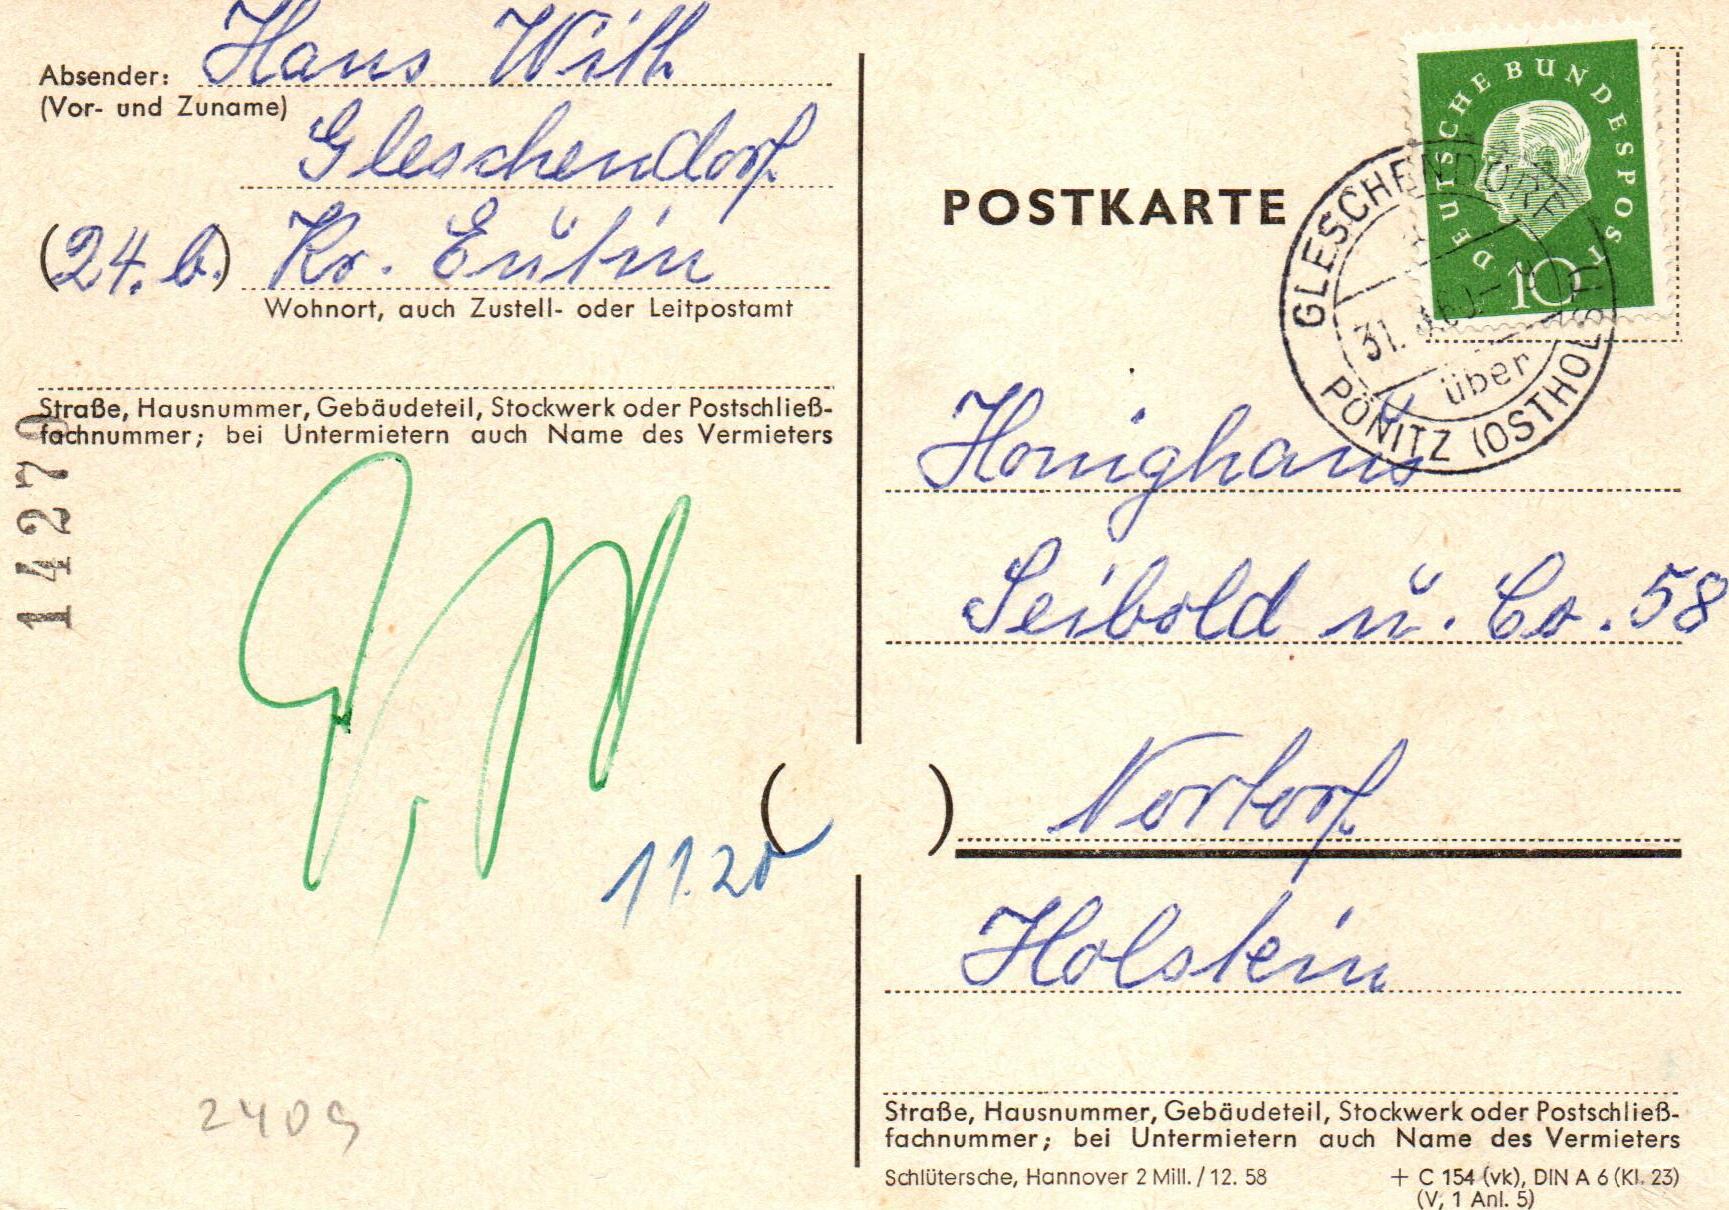 Absender: Hans Witt
(Vor- und Zuname)
Gleschendorf
(24.b.) Kr. Eutin
Wohnort, auch Zustell- oder Leitpostamt
Straße, Hausnummer, Gebäudeteil, Stockwerk oder Postschließ-
fachnummer; bei Untermietern auch Name des Vermieters
14279
11.20
2409
DEUTSCHE BUNDESPOST
10
GLESCHENDORF
31.
über
PÖNITZ (OSTHOLST)
POSTKARTE
Honighaus
Seibold u. Co. 58
( ) Nortorf
Holstein
Straße, Hausnummer, Gebäudeteil, Stockwerk oder Postschließ-
fachnummer; bei Untermietern auch Name des Vermieters
Schlütersche, Hannover 2 Mill. / 12. 58
+ C 154 (vk), DIN A 6 (Kl. 23)
(V, 1 Anl. 5)